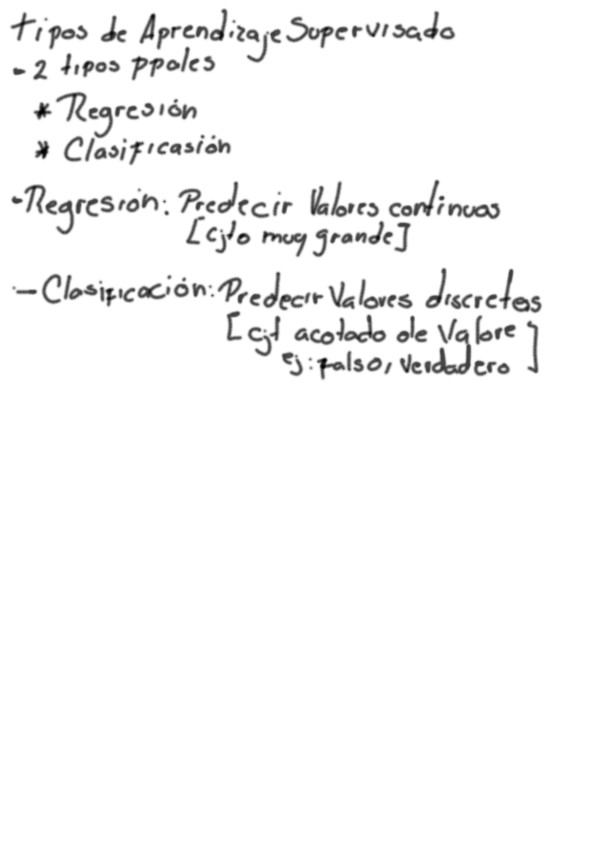 Tipos de Aprendizaje Supervisado
- 2 tipos ppales
* Regresión
* Clasificasión
- Regresión: Predecir Valores continuos
[cjto muy grande]
- Clasificación: Predecir Valores discretos
[cjt acotado de Valore
ej: falso, Verdadero ]